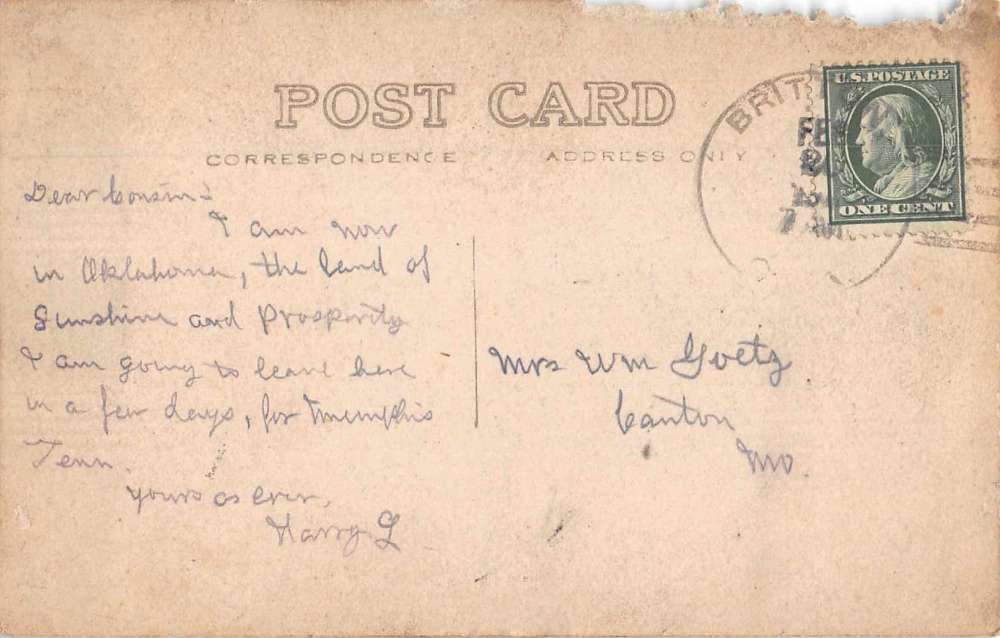 POST CARD
CORRESPONDENCE
ADDRESS ONLY
BRIT
FEB
7 AM
U.S. POSTAGE
ONE CENT
Dear Cousin:-
I am now
in Oklahoma, the land of
Sunshine and Prosperity
I am going to leave here
in a few days, for Memphis
Tenn.
Yours as ever,
Harry G
Mrs Wm Goetz
Canton
Mo.